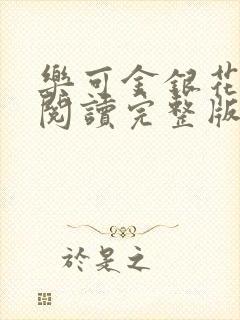 樂可金銀花
閱讀完整版
於是之